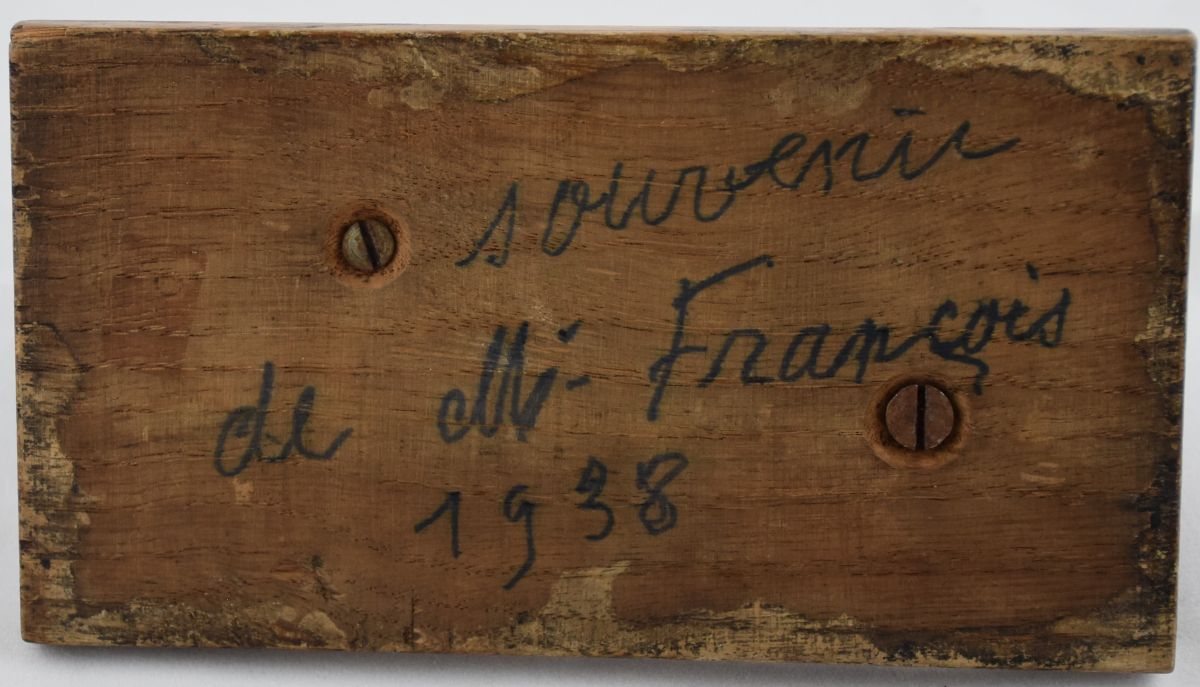 souvenir
de Mr François
1938